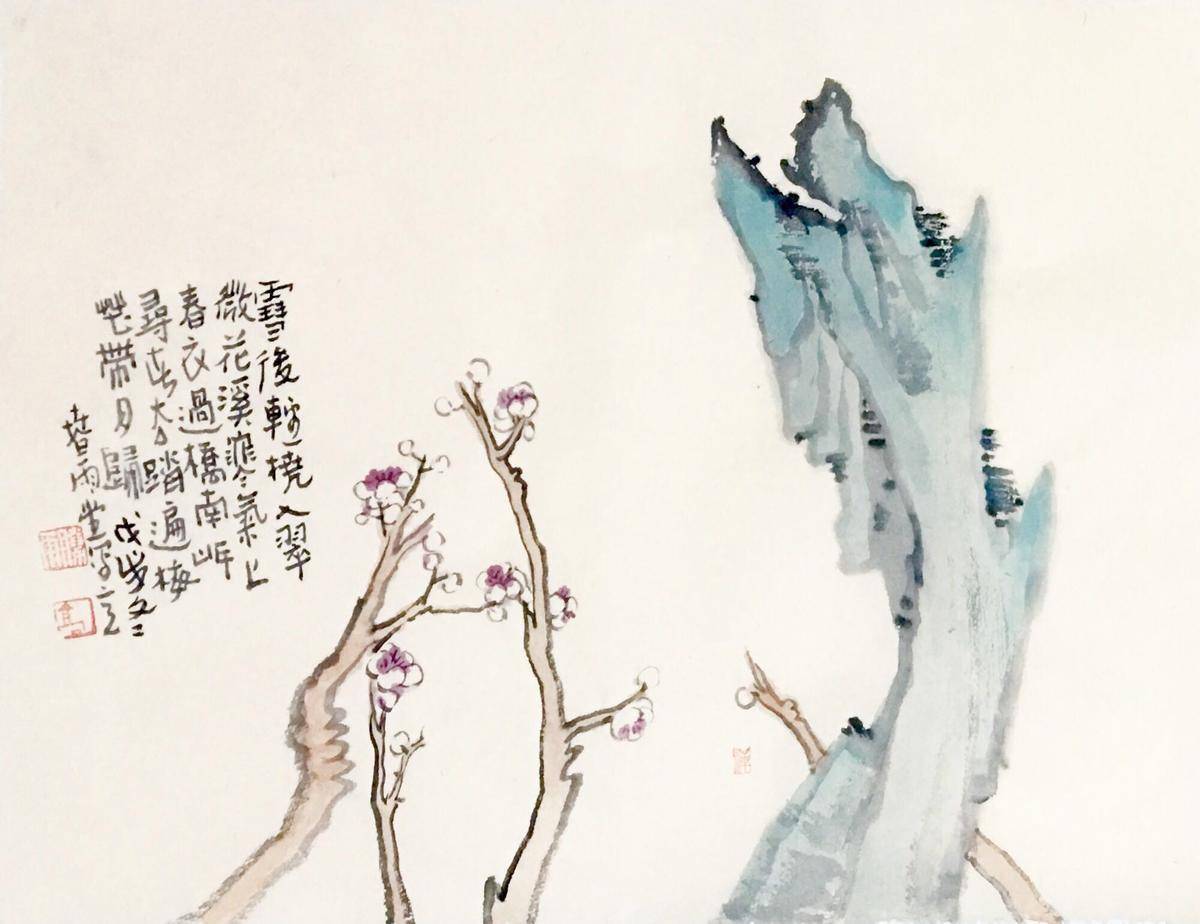 雪後輕橈入翠
微花溪寒氣上
春衣過橋南岸
尋春去踏遍梅
花帶月歸戊戌冬
春雨堂写之